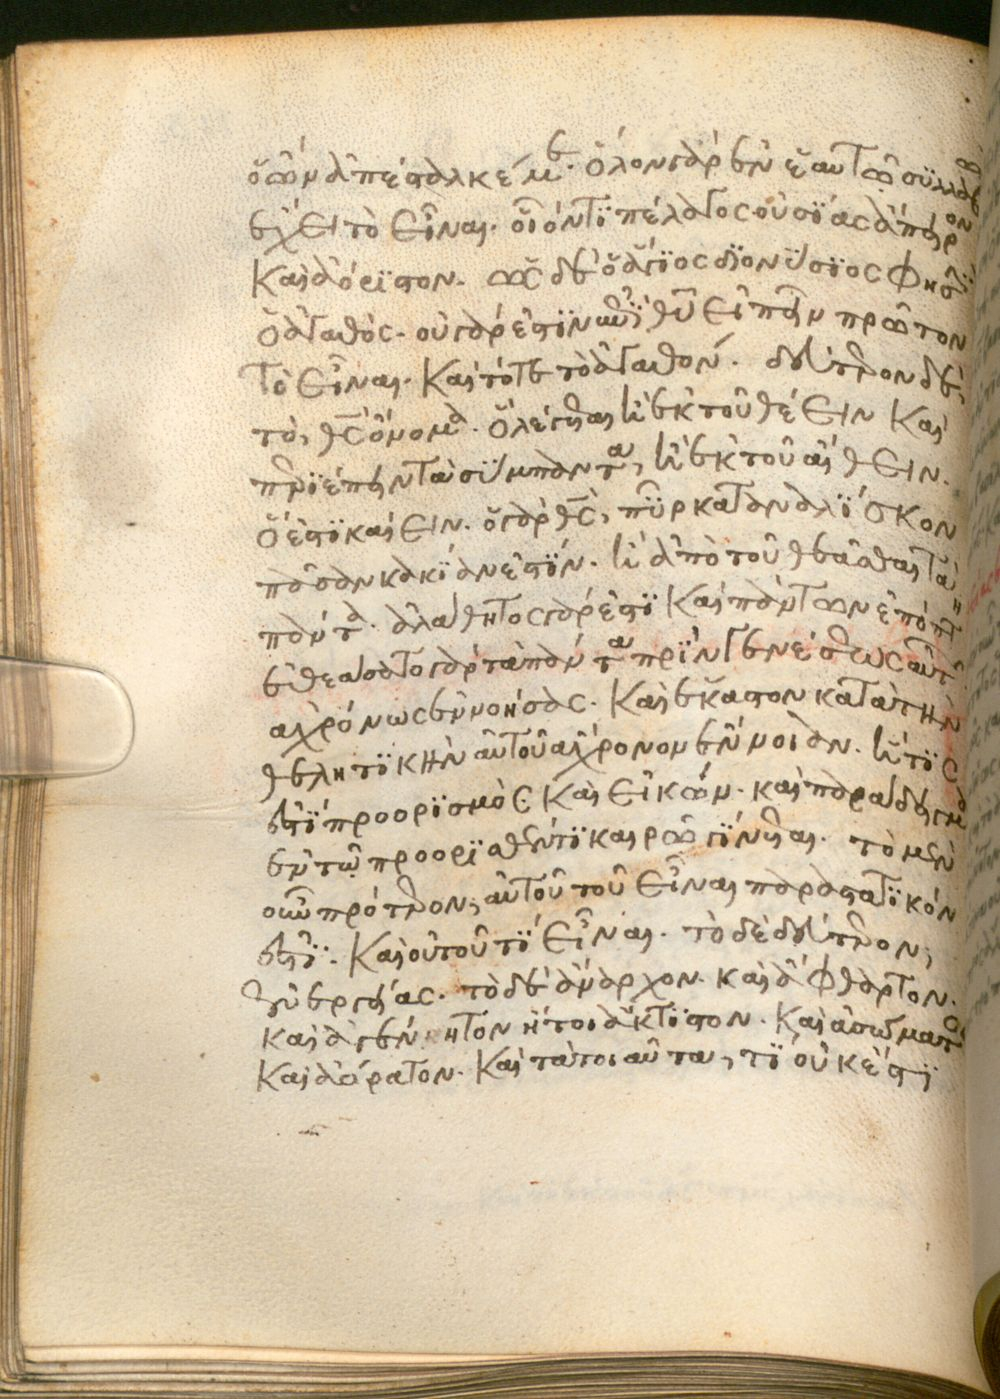 ὁ ὢν ἀπέσταλκέ με. ὅλον γὰρ ἐν ἑαυτῷ συλλαβὼν
ἔχει τὸ εἶναι. οἷόν τι πέλαγος οὐσίας ἄπειρον
καὶ ἀόριστον. ὡς δὲ ὁ ἅγιος διονύσιος φησὶ
ὁ ἀγαθός. οὐ γάρ ἐστιν ἐπὶ θυ εἰπεῖν πρῶτον
τὸ εἶναι. καὶ τότε τὸ ἀγαθόν. δεύτερον δὲ
τὸ, θς ὄνομα. ὃ λέγεται ἢ ἐκ τοῦ θέειν καὶ
περιέπειν τὰ σύμπαντα, ἢ ἐκ τοῦ αἴθειν.
ὅ ἐστι καίειν. ὁ γὰρ θς, πῦρ καταναλίσκον
πᾶσαν κακίαν ἐστίν. ἢ ἀπὸ τοῦ θεᾶσθαι τὰ
πάντα. ἀλάθητος γάρ ἐστι καὶ πάντων ἐπόπτης
ἐθεάσατο γὰρ τὰ πάντα πρὶν γενέσεως αὐτῶν
ἀχρόνως ἐννοήσας. καὶ ἕκαστον κατὰ τὴν
θελητικὴν αὐτοῦ ἄχρονον ἔννοιαν. ἥτις
ἐστὶ προορισμὸς. καὶ εἰκών. καὶ παράδειγμα
ἐν τῷ προορισθέντι καιρῷ γίνεται. τὸ μὲν
οὖν πρότερον, αὐτοῦ τοῦ εἶναι παραστατικόν
ἐστι. καὶ οὐ τοῦ τί εἶναι. τὸ δὲ δεύτερον,
ἐνεργείας. τὸ δὲ ἄναρχον. καὶ ἄφθαρτον.
καὶ ἀγένητον ἤτοι ἄκτιστον. καὶ ἀσώματον
καὶ ἀόρατον. καὶ τὰ τοιαῦτα, τί οὐκ ἔστι